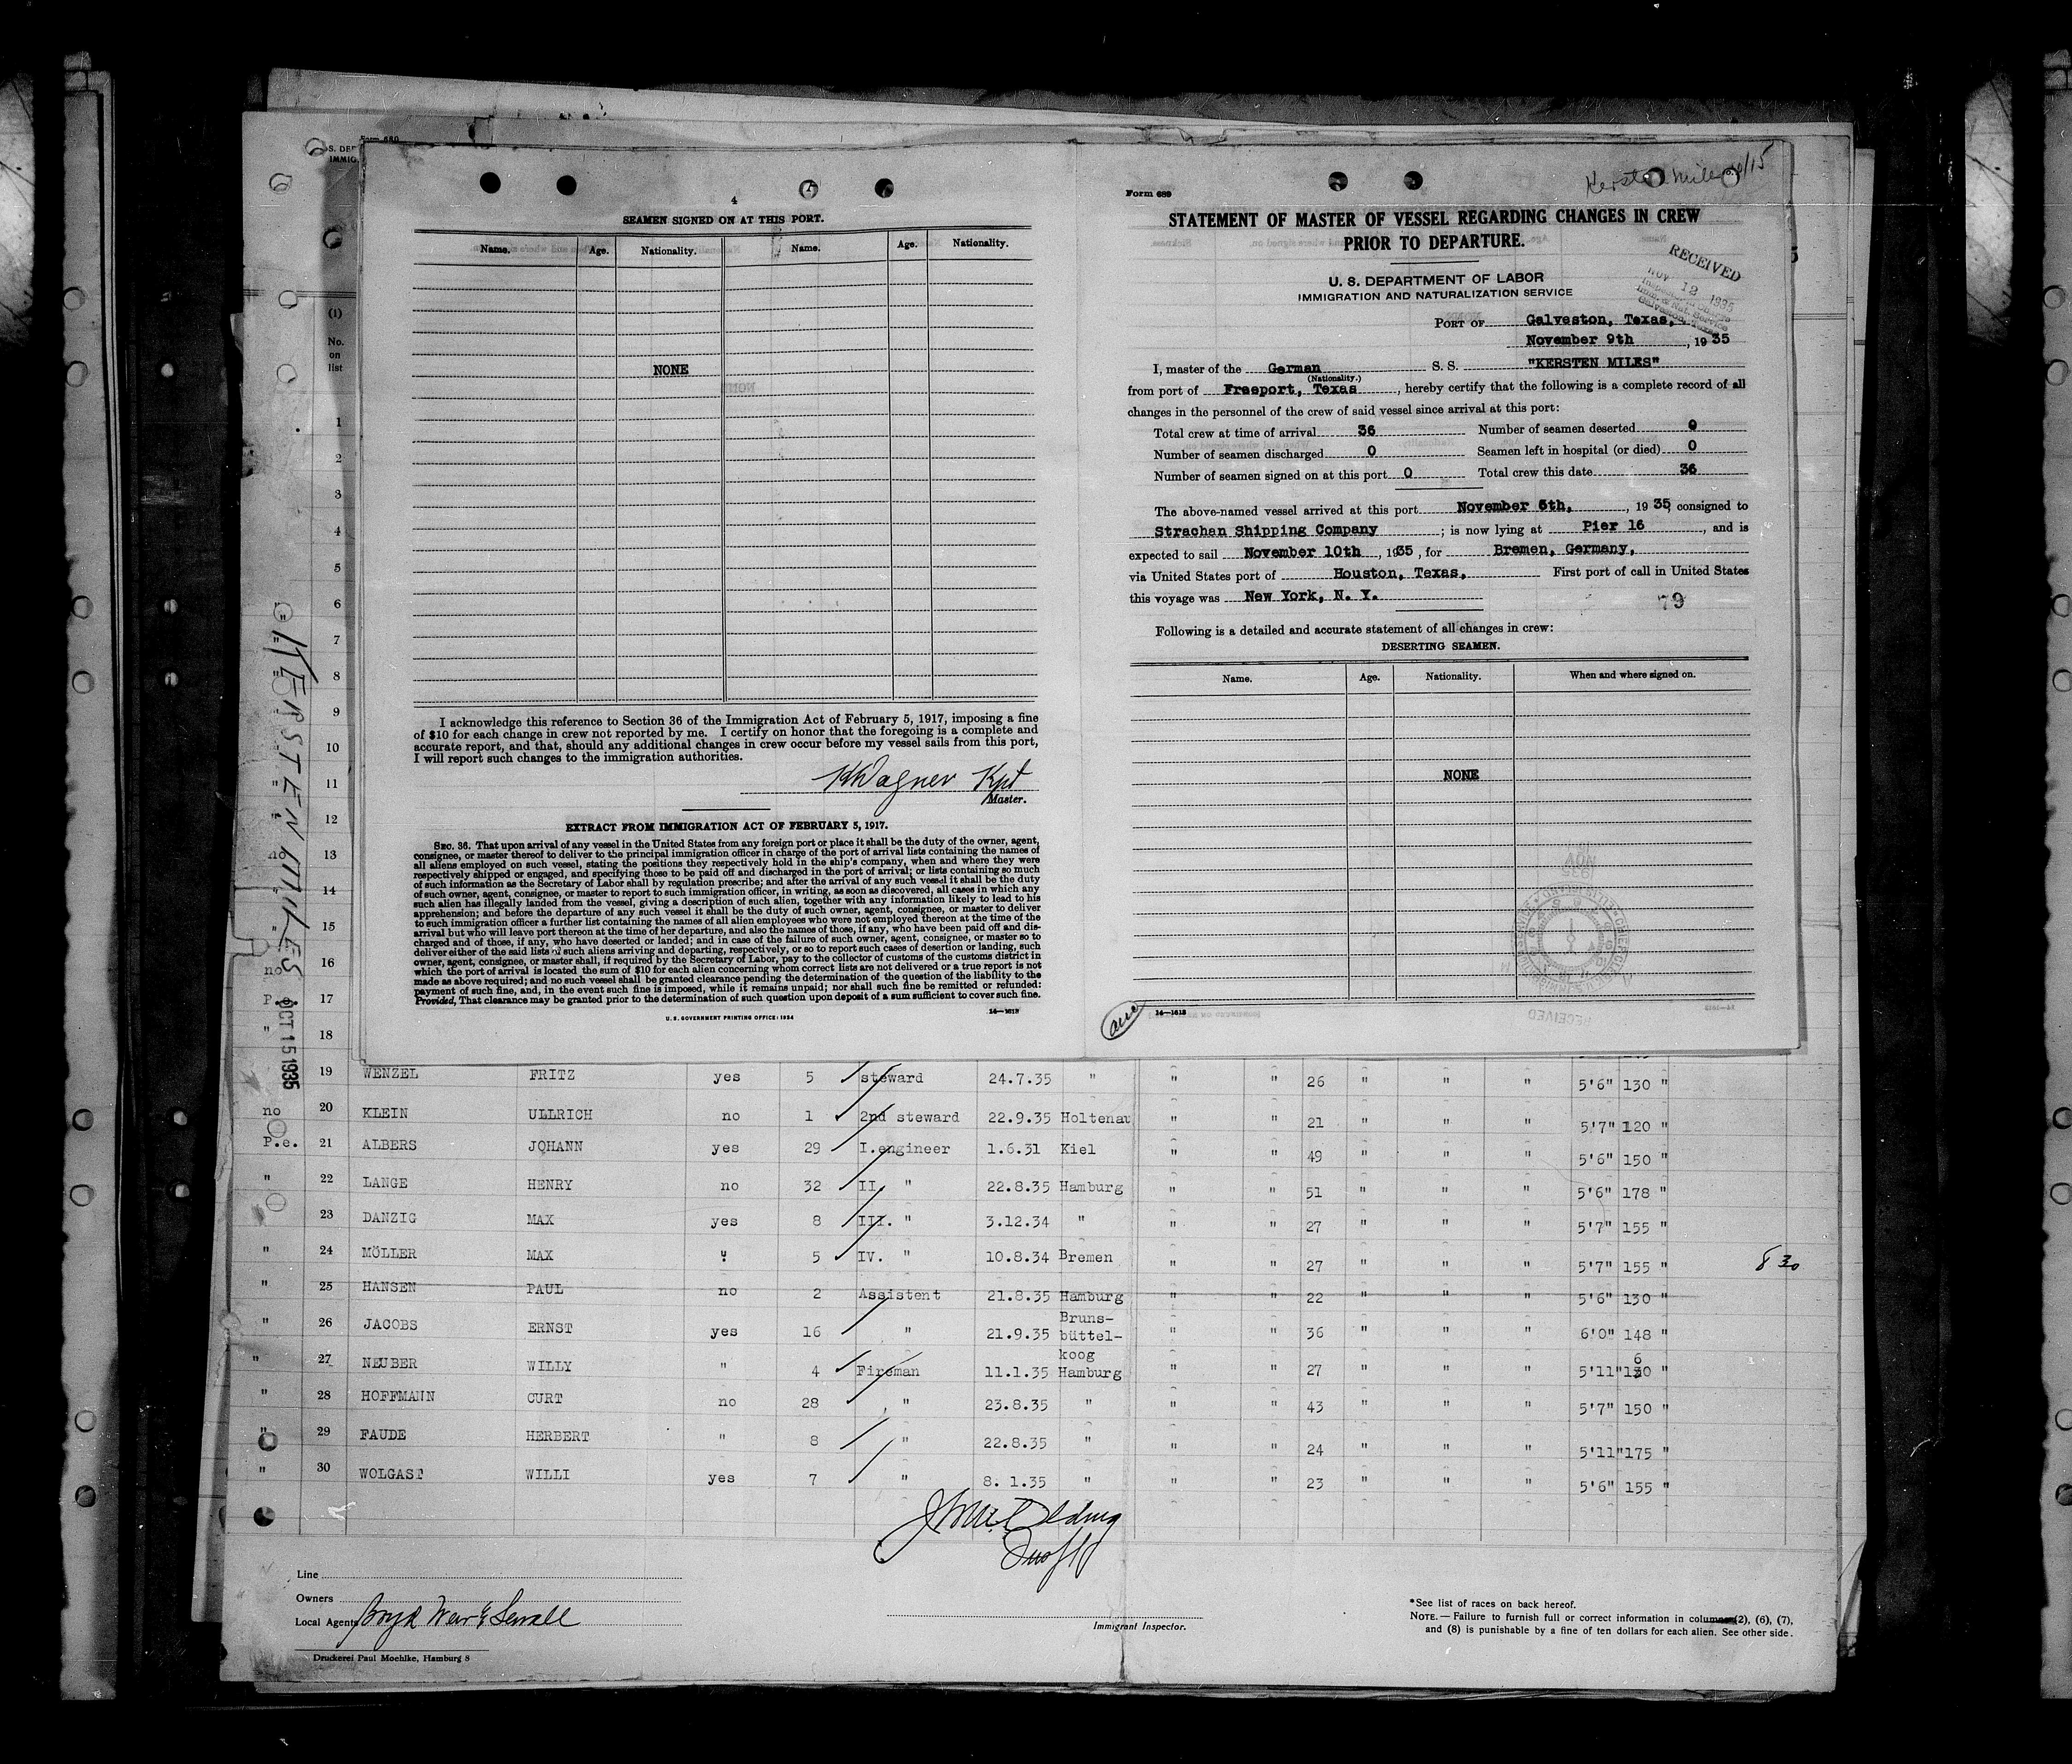 4
SEAMEN SIGNED ON AT THIS PORT.
Name. Age. Nationality. Name. Age. Nationality.
NONE
I acknowledge this reference to Section 36 of the Immigration Act of February 5, 1917, imposing a fine
of $10 for each change in crew not reported by me. I certify on honor that the foregoing is a complete and
accurate report, and that, should any additional changes in crew occur before my vessel sails from this port,
I will report such changes to the immigration authorities.
Wagner Kpt
Master.
EXTRACT FROM IMMIGRATION ACT OF FEBRUARY 5, 1917.
SEC. 36. That upon arrival of any vessel in the United States from any foreign port or place it shall be the duty of the owner, agent,
consignee, or master thereof to deliver to the principal immigration officer in charge of the port of arrival lists containing the names of
all aliens employed on such vessel, stating the positions they respectively hold in the ship's company, when and where they were
respectively shipped or engaged, and specifying those to be paid off and discharged in the port of arrival; or lists containing so much
of such information as the Secretary of Labor shall by regulation prescribe; and after the arrival of any such vessel it shall be the duty
of such owner, agent, consignee, or master to report to such immigration officer, in writing, as soon as discovered, all cases in which any
such alien has illegally landed from the vessel, giving a description of such alien, together with any information likely to lead to his
apprehension; and before the departure of any such vessel it shall be the duty of such owner, agent, consignee, or master to deliver
to such immigration officer a further list containing the names of all alien employees who were not employed thereon at the time of the
arrival but who will leave port thereon at the time of her departure, and also the names of those, if any, who have been paid off and dis-
charged and of those, if any, who have deserted or landed; and in case of the failure of such owner, agent, consignee, or master so to
deliver either of the said lists of such aliens arriving and departing, respectively, or so to report such cases of desertion or landing, such
owner, agent, consignee, or master shall, if required by the Secretary of Labor, pay to the collector of customs of the customs district in
which the port of arrival is located the sum of $10 for each alien concerning whom correct lists are not delivered or a true report is not
made as above required; and no such vessel shall be granted clearance pending the determination of the question of the liability to the
payment of such fine, and, in the event such fine is imposed, while it remains unpaid; nor shall such fine be remitted or refunded:
Provided, That clearance may be granted prior to the determination of such question upon deposit of a sum sufficient to cover such fine.
U. S. GOVERNMENT PRINTING OFFICE: 1934 14—1618
Form 689
Kersten Miles 10/15
STATEMENT OF MASTER OF VESSEL REGARDING CHANGES IN CREW
PRIOR TO DEPARTURE.
U. S. DEPARTMENT OF LABOR
IMMIGRATION AND NATURALIZATION SERVICE
RECEIVED
NOV 12 1935
PORT OF Galveston, Texas,
November 9th, 1935
I, master of the German S. S. "KERSTEN MILES"
(Nationality.)
from port of Freeport, Texas, hereby certify that the following is a complete record of all
changes in the personnel of the crew of said vessel since arrival at this port:
Total crew at time of arrival 36 Number of seamen deserted 0
Number of seamen discharged 0 Seamen left in hospital (or died) 0
Number of seamen signed on at this port 0 Total crew this date 36
The above-named vessel arrived at this port November 6th, 1935, consigned to
Strachan Shipping Company; is now lying at Pier 16, and is
expected to sail November 10th, 1935, for Bremen, Germany,
via United States port of Houston, Texas, First port of call in United States
this voyage was New York, N. Y.
79
Following is a detailed and accurate statement of all changes in crew:
DESERTING SEAMEN.
Name. Age. Nationality. When and where signed on.
NONE
14—1618
(1)
No.
on
list
1
2
3
4
5
6
7
8
9
10
11
12
13
14
15
16
17
18
KERSTEN MILES OCT 15 1935
19 WENZEL FRITZ yes 5 steward 24.7.35 " " " 26 " " " 5'6" 130 "
no 20 KLEIN ULLRICH no 1 2nd steward 22.9.35 Holtenau " " 21 " " " 5'7" 120 "
P.e. 21 ALBERS JOHANN yes 29 I.engineer 1.6.31 Kiel " " 49 " " " 5'6" 150 "
" 22 LANGE HENRY no 32 II. " 22.8.35 Hamburg " " 51 " " " 5'6" 178 "
23 DANZIG MAX yes 8 III. " 3.12.34 " " " 27 " " " 5'7" 155 "
" 24 MÖLLER MAX " 5 IV. " 10.8.34 Bremen " " 27 " " " 5'7" 155 " 8 30
" 25 HANSEN PAUL no 2 Assistent 21.8.35 Hamburg " " 22 " " " 5'6" 130 "
" 26 JACOBS ERNST yes 16 " 21.9.35 Bruns-büttel-koog " " 36 " " " 6'0" 148 "
" 27 NEUBER WILLY " 4 Fireman 11.1.35 Hamburg " " 27 " " " 5'11" 160 "
" 28 HOFFMANN CURT no 28 " 23.8.35 " " " 43 " " " 5'7" 150 "
" 29 FAUDE HERBERT " 8 " 22.8.35 " " " 24 " " " 5'11" 175 "
" 30 WOLGAST WILLI yes 7 " 8. 1.35 " " " 23 " " " 5'6" 155 "
Line
Owners
Local Agents Boyd Weir & Sewall
Druckerei Paul Moehlke, Hamburg 8
Immigrant Inspector.
*See list of races on back hereof.
NOTE.—Failure to furnish full or correct information in columns (2), (6), (7),
and (8) is punishable by a fine of ten dollars for each alien. See other side.